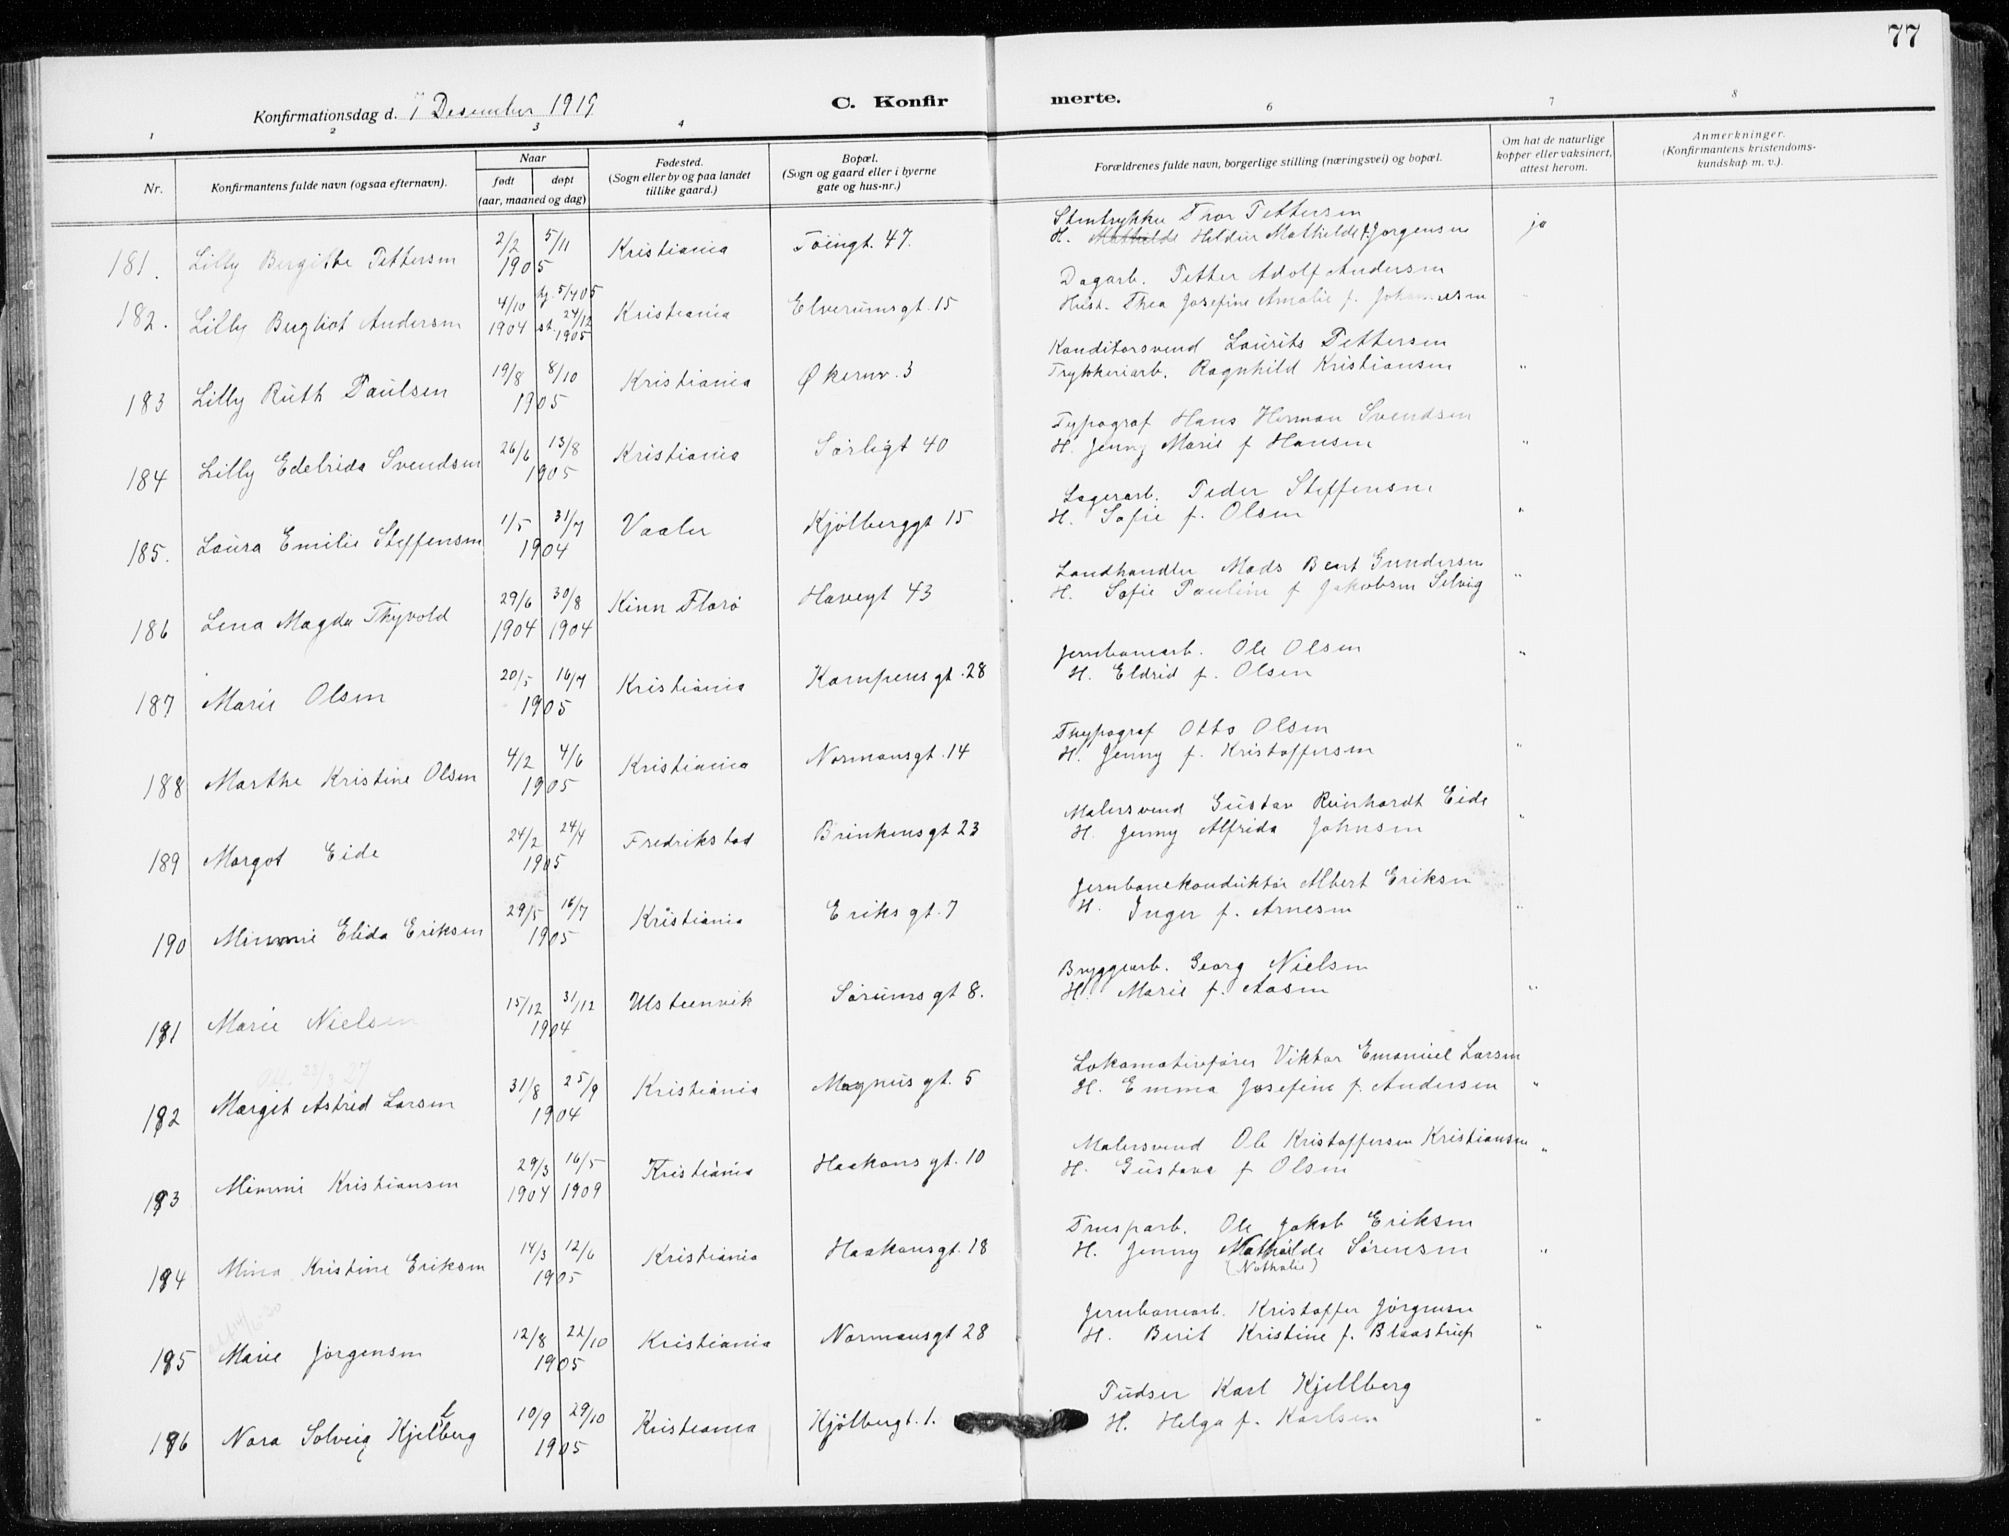 77
Konfirmationsdag d. 7 Desember 1919
C. Konfirmerte.
1 2 3 4 6 7 8
Nr.
Konfirmantens fulde navn (ogsaa efternavn).
Naar
født døpt
(aar, maaned og dag)
Fødested.
(Sogn eller by og paa landet
tillike gaard.)
Bopæl.
(Sogn og gaard eller i byerne
gate og hus-nr.)
Forældrenes fulde navn, borgerlige stilling (næringsvei) og bopæl.
Om hat de naturlige
kopper eller vaksinert,
attest herom.
Anmerkninger.
(Konfirmantens kristendoms-
kundskap m. v.).
181. Lilly Bergithe Pettersen 2/2 5/11 1905 Kristiania Töiengt. 47.
Stentrykker Tror Pettersen
H. Mathilde Heldur Mathilde f. Jørgensen ja
182. Lilly Bergliot Andersen 4/10 1904 hj. 5/4 05 st. 24/12 1905 Kristiania Elverumsgt. 15
Dagarb. Petter Adolf Andersen
Hust. Thea Josefine Amalie f. Johannesen "
183 Lilly Ruth Paulsen 19/8 8/10 1905 Kristiania Økernv. 3
Konditorsvend Laurits Pettersen
Trykkeriarb. Ragnhild Kristiansen "
184 Lilly Edelrida Svendsen 26/6 13/8 1905 Kristiania Sørligt 40
Typograf Hans Herman Svendsen
H. Jenny Marie f Hansen "
185. Laura Emilie Steffensen 1/5 31/7 1904 Vaaler Kjølberggt 15
Lagerarb. Peder Steffensen
H. Sofie f. Olsen "
186 Lena Magda Thyvold 29/6 1904 30/8 1904 Kinn Florø Havegt 43
Landhandler Mads Bent Gundersen
H. Sofie Pauline f Jakobsen Selvig "
187 Marie Olsen 20/5 16/7 1905 Kristiania Kampensgt. 28
Jernbanearb. Ole Olsen
H. Eldrid f. Olsen "
188 Marthe Kristine Olsen 4/2 4/6 1905 Kristiania Normansgt. 14
Thypograf Otto Olsen
H. Jenny f. Kristoffersen "
189 Margot Eide 24/2 24/4 1905 Fredrikstad Brinkensgt 23
Malersvend Gustav Reinhardt Eide
H. Jenny Alfrida Johnsen "
190 Mimmie Elida Eriksen 29/5 16/7 1905 Kristiania Eriksgt. 7
Jernbanekonduktør Albert Eriksen
H. Inger f. Arnesen "
191 Marie Nielsen 15/12 31/12 1904 Ulsteenvik Sørumsgt 8.
Bryggearb. Georg Nielsen
H. Marie f. Aasen "
192 Margit Astrid Larsen 31/8 25/9 1904 Kristiania Magnusgt. 5
Lokomotivfører Viktor Emanuel Larsen
H. Emma Josefine f. Andersen "
193 Mimmi Kristiansen 29/3 1904 16/5 1909 Kristiania Haakonsgt. 10
Malersvend Ole Kristoffersen Kristiansen
H. Gustava f Olsen "
194 Mina Kristine Eriksen 14/3 12/6 1905 Kristiania Haakonsgt. 18
Ole Jakob Eriksen
H. Jenny Mathilde Sørensen "
(Nathalie)
195 Marie Jørgensen 12/8 22/10 1905 Kristiania Normansgt 28
Jernbanearb. Kristoffer Jørgensen
H. Berit Kristine f. Blaastrup "
196 Nora Solveig Kjellberg 10/9 29/10 1905 Kristiania Kjølbergt. 1.
Pudser Karl Kjellberg
H. Helga f. Karlsen "